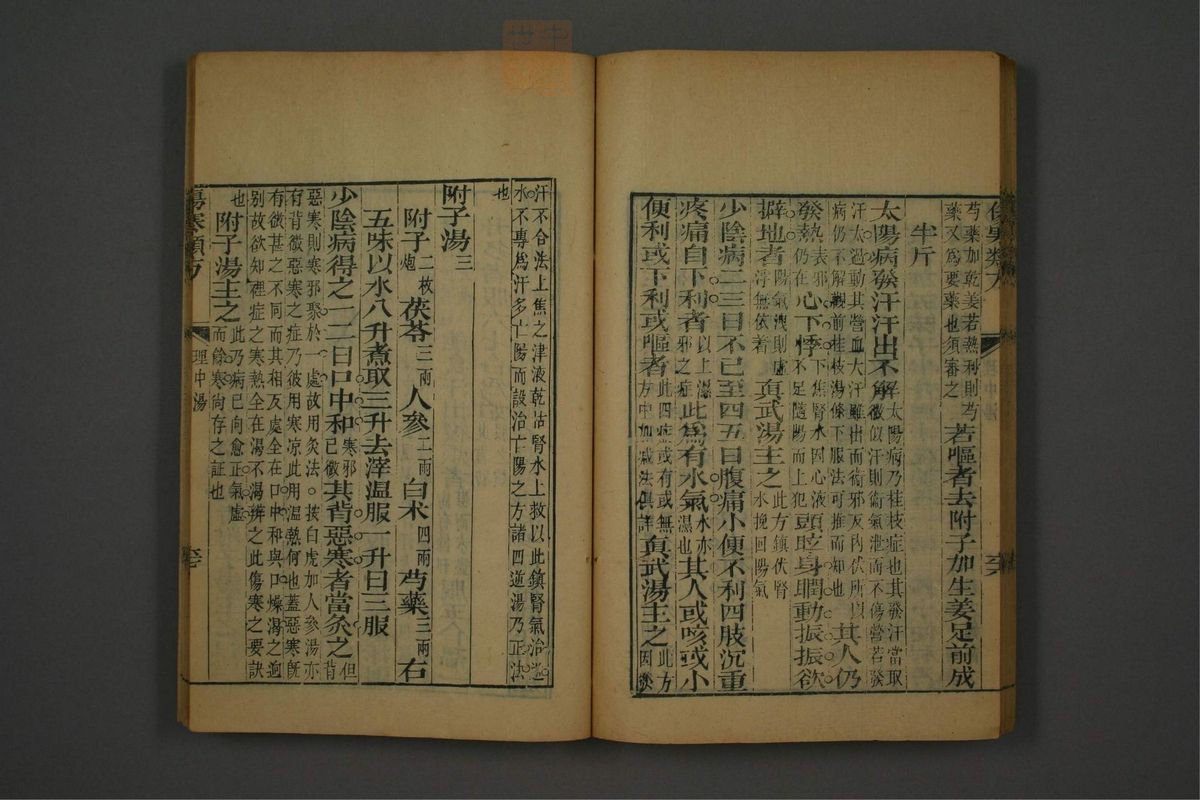 芍藥加乾姜若熱利則芍
藥又為要藥也須審之
若嘔者去附子加生姜足前成
半斤
太陽病發汗汗出不解
太陽病乃桂枝症也其發汗當取
微似汗則衛氣泄而不傷營若發
汗太過動其營血大汗雖出而衛邪反內伏所以
病仍不解觀前桂枝湯條下服法可推而知也
其人仍
發熱
表邪
仍在
心下悸
下焦腎水因心液
不足隨陽而上犯
頭眩身瞤動振振欲
擗地者
陽氣洩則虛
浮無依着
真武湯主之
此方鎮伏腎
水挽回陽氣
少陰病二三日不已至四五日腹痛小便不利四肢沉重
疼痛自下利者
以上濕
邪之症
此為有水氣
水亦
濕也
其人或咳或小
便利或下利或嘔者
此四症或有或無
方中加減法俱詳
真武湯主之
此方
因發
汗不合法上焦之津液乾枯腎水上救以此鎮腎氣治逆
水不專為汗多亡陽而設治亡陽之方諸四逆湯乃正法
也
附子湯三
附子
二枚
炮
茯苓
三兩
人參
二兩
白朮
四兩
芍藥
三兩
右
五味以水八升煮取三升去滓溫服一升日三服
少陰病得之一二日口中和
寒邪
已微
其背惡寒者當灸之
但背
惡寒則寒邪聚於一處故用灸法。按白虎加人參湯亦
有背微惡寒之症乃彼用寒涼此用溫熱何也蓋惡寒既
有微甚之不同而其相反處全在口中和與口燥渴之迥
別故欲知裡症之寒熱全在渴不渴辨之此傷寒之要訣
也
附子湯主之
此乃病已向愈正氣虛
而餘寒尚存之証也
傷寒類方
理中湯